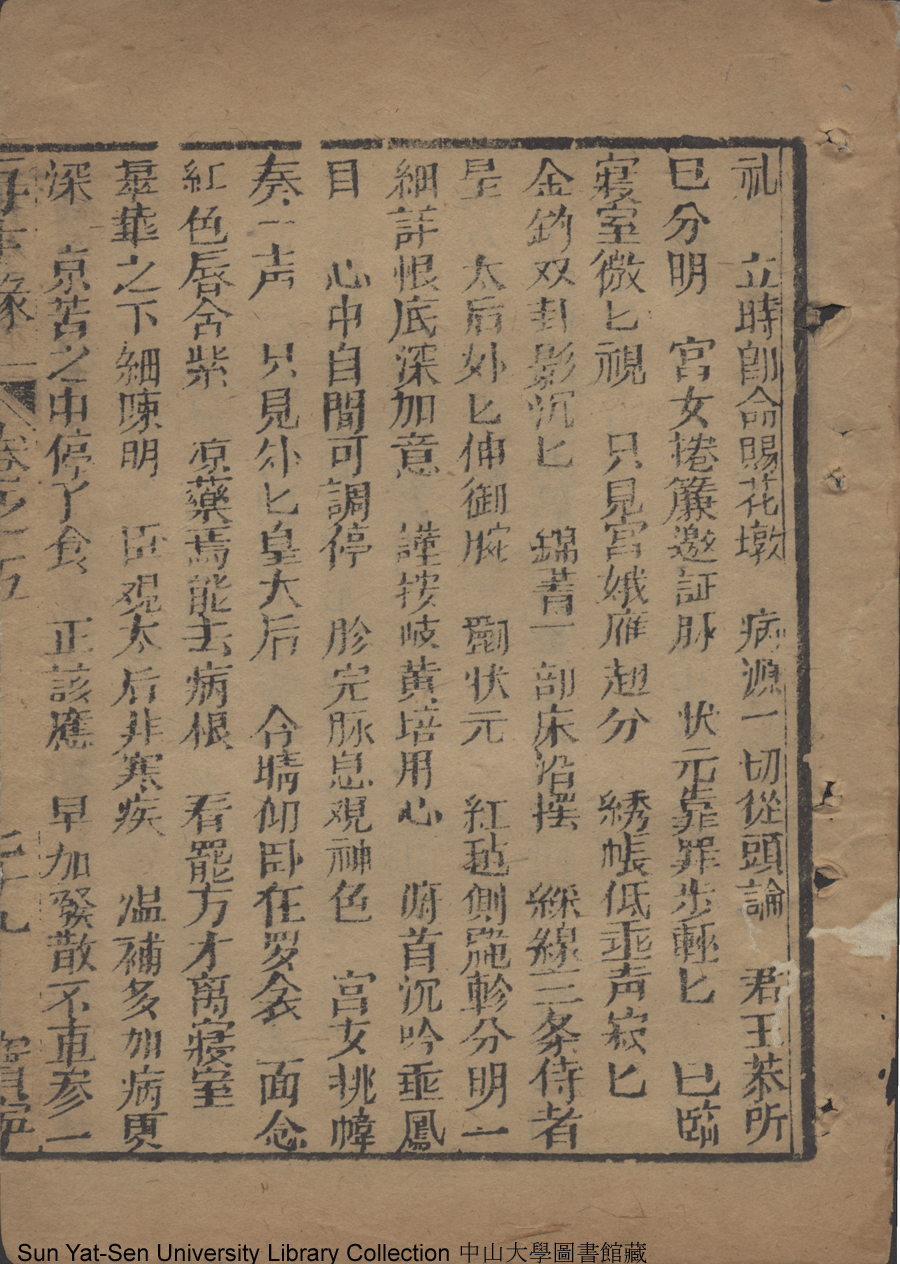 礼　立時卽命賜花墩　病源一切從頭論　君王恭所
巳分明　宮女捲簾邀証脉　状元靠罪步輕匕　已臨
寢室微匕視　只見宮娥雁翅分　綉帳低垂声寂匕
金鈎双卦影沉匕　錦褥一部床沿擺　綵線三条侍者
呈　太后外匕伸御腕　鄷状元　紅毡側跪軫分明一
細詳恨底深加意　謹按岐黄培用心　俯首沉吟垂鳳
目　心中自聞可調停　胗完脉息观神色　宮女挑幃
奏一声　只見外匕皇太后　合晴仰卧在罗衾　面念
紅色唇含紫　凉藥焉能去病根　看罷方才离寢室
翠華之下細陳明　臣观太后非寒疾　温補多加病更
深　京苦之中停了食　正該應　早加發散不重参一
再生緣　卷之十五